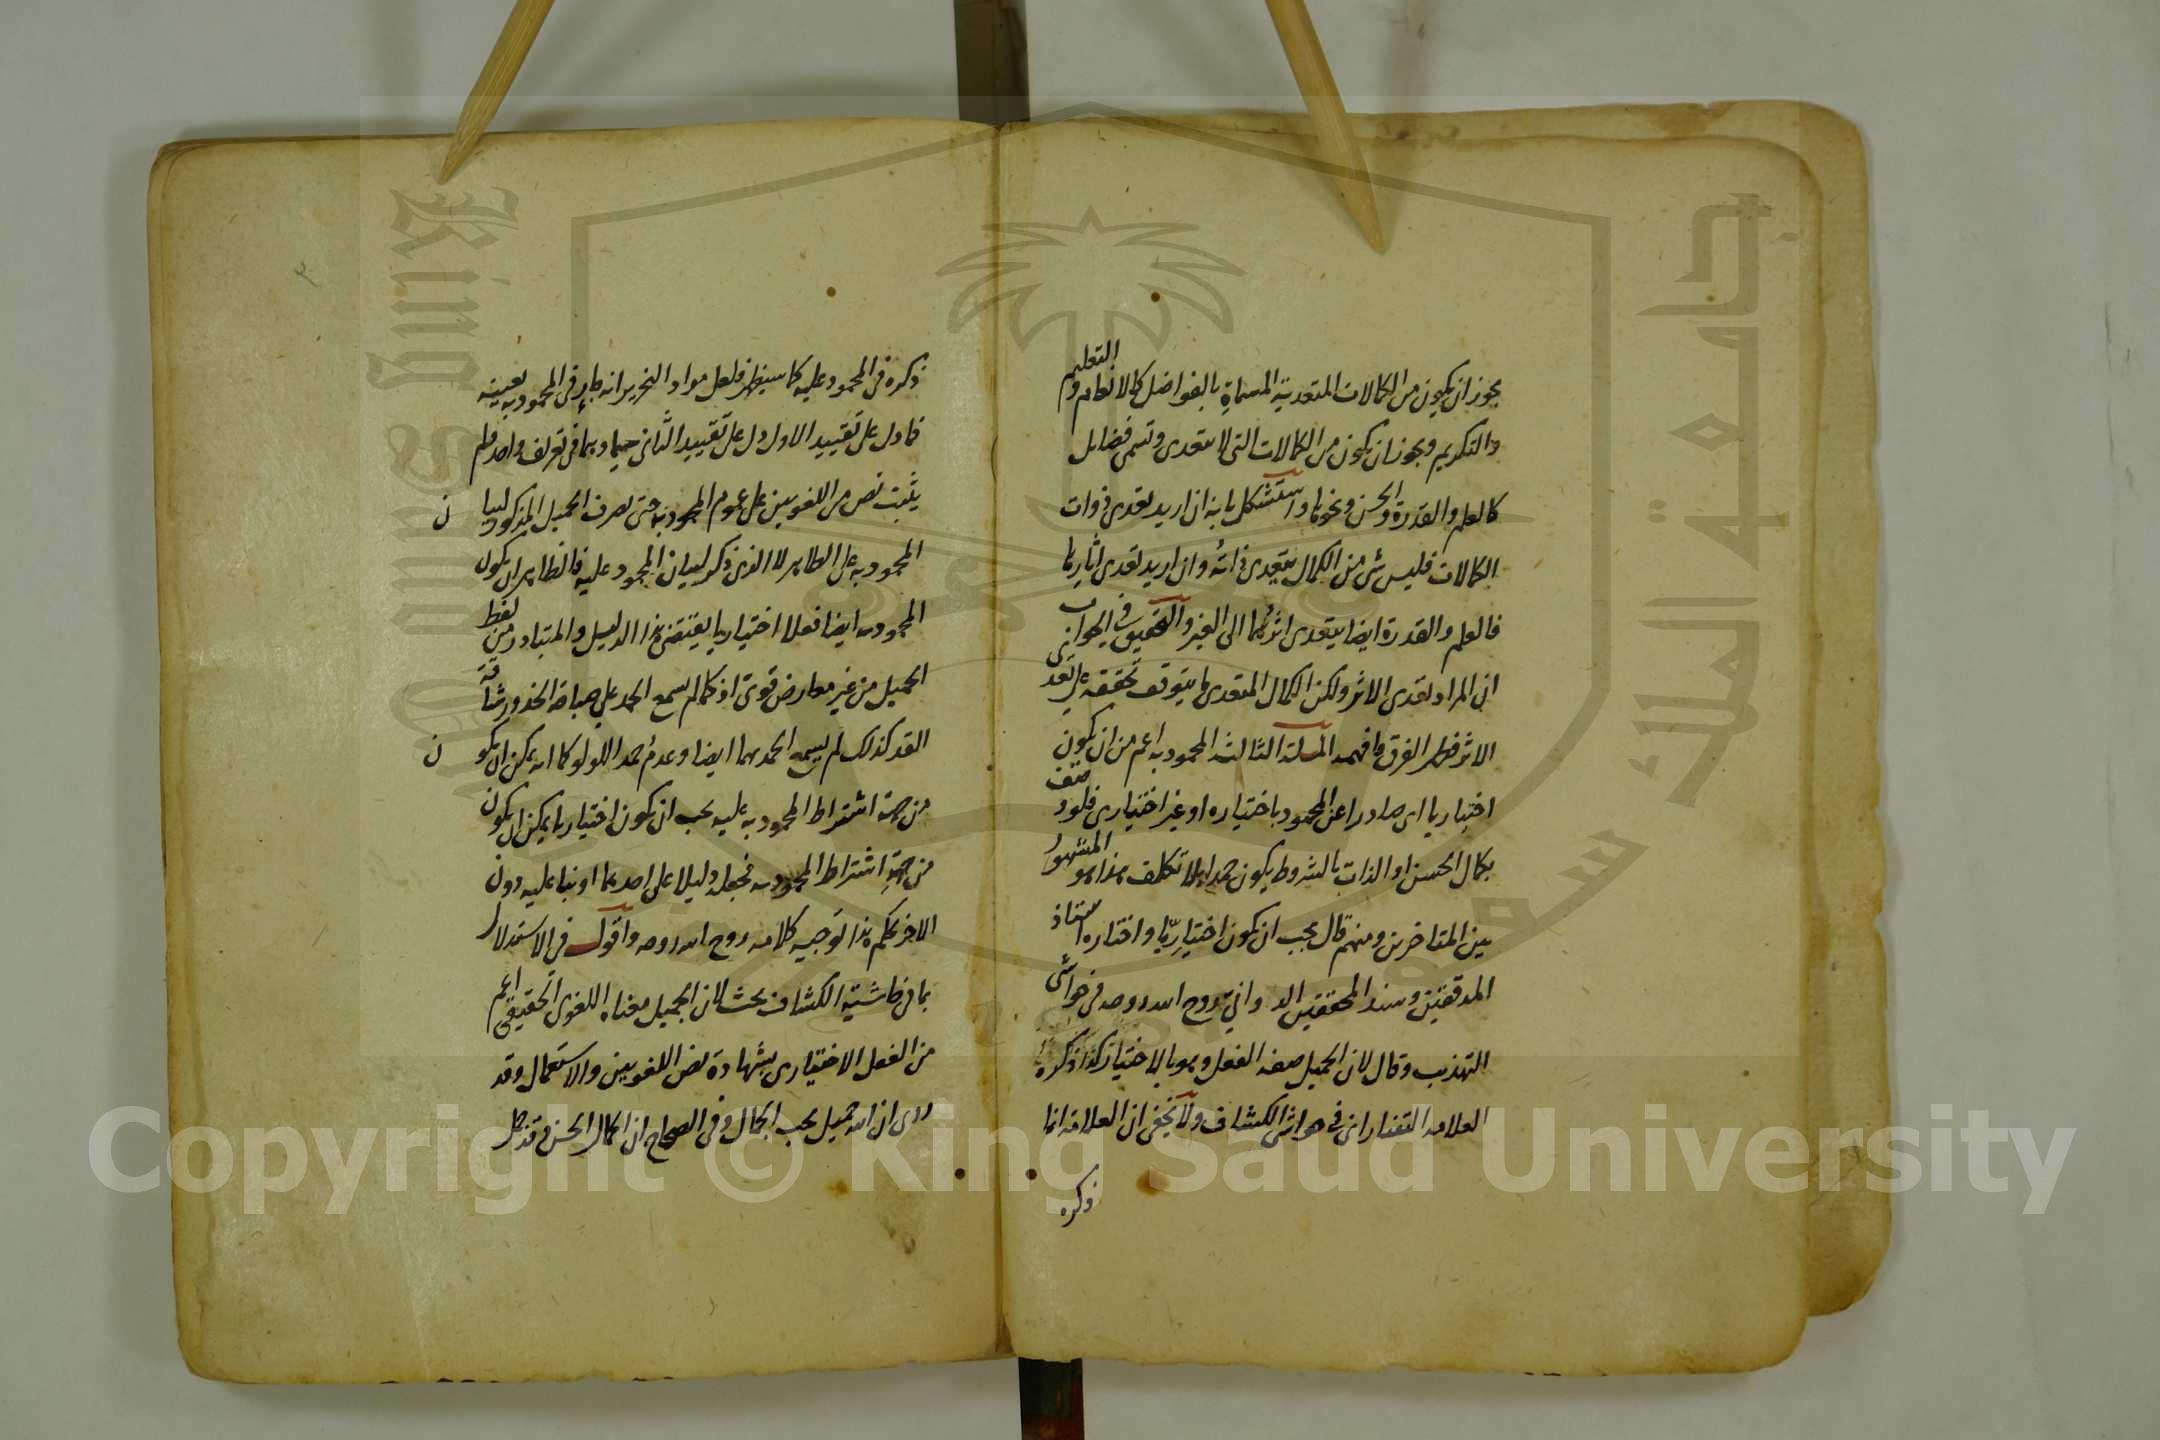 يجوز ان يكون من الكمالات المتعدية المسماة بالفواضل كالانعام والتعليم
والتكريم ويجوز ان يكون من الكمالات التي لا يتعدى وتسمى فضايل
كالعلم والقدرة والحسن ونحوها واستشكل بانه ان اريد تعدى ذوات
الكمالات فليس شئ من الكمال يتعدى ذاته وان اريد تعدى اثارها
فالعلم والقدرة ايضا يتعدى اثرهما الى الغير والتحقيق في الجواب
ان المراد تعدى الاثر ولكن الكمال المتعدى ما يتوقف تحققه على تعدى
الاثر فظهر الفرق فافهمه المسئلة الثالثة المحمود به اعم من ان يكون
اختياريا اى صادرا عن المحمود باختياره او غير اختيارى فلو وصف
بكمال الحسن او الذات بالشروط يكون حمدا بلا تكلف هذا هو المشهور
بين المتاخرين ومنهم قال يجب ان يكون اختياريا واختاره استاذ
المدققين وسند المحققين الدواني روح الله روحه في حواشى
التهذيب وقال لان الجميل صفة الفعل وهو بالاختيار كذا ذكره
العلامه التفتازانى فى حواشى الكشاف ولا يخفى ان العلامة انما
ذكره
ذكره فى المحمود عليه كما سيظهر فلعل مراد النحرير انه جار فى المحمود به بعينه
فما دل على تقييد الاول دل على تقييد الثانى جميعا وهما فى تعريف واحد فلم
يثبت نص من اللغويين على عموم المحمود به حتى يصرف الجميل المذكور لبيان
المحمود به على الظاهر لا الذى ذكر لبيان المحمود عليه فالظاهر ان يكون
المحمود به ايضا فعلا اختياريا يقتضى هذا الدليل والمتبادر من لفظ
الجميل من غير معارض قوى اذ كما لم يسمع الحمد على صباحة الخد ورشاقة
القد كذلك لم يسمع الحمد بهما ايضا وعدم حمد اللولو كما انه يمكن ان يكون
من جهة اشتراط المحمود به عليه يجب ان يكون اختياريا يمكن ان يكون
من جهة اشتراط المحمود به فجعله دليلا على احدهما او بناء عليه دون
الاخر تحكم هذا توجيه كلامه روح الله روحه واقول فى الاستدلال
بما فى حاشية الكشاف بحث لان الجميل معناه اللغوى الحقيقى اعم
من الفعل الاختيارى بشهادة نص اللغويين والاستعمال وقد
روى ان الله جميل يحب الجمال وفى الصحاح ان الجمال الحسن وقد جمل
Copyright © King Saud University
King Saud University
جامعة الملك سعود